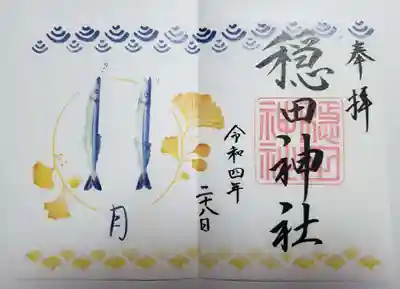 奉拝
穏田神社
穏田
神社
令和四年
月
二十八日